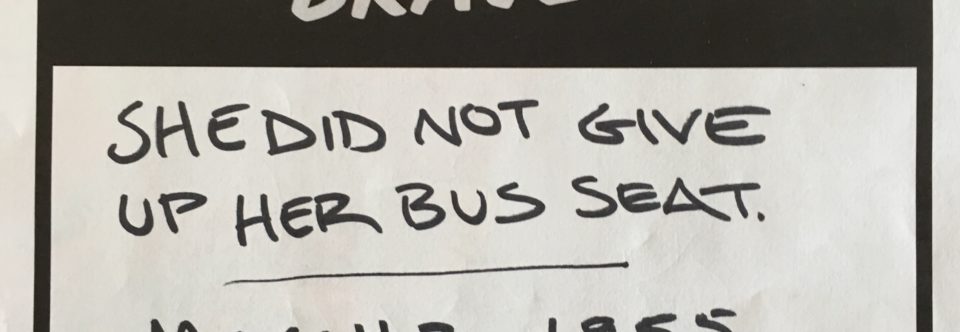 SHE DID NOT GIVE
UP HER BUS SEAT.
1955